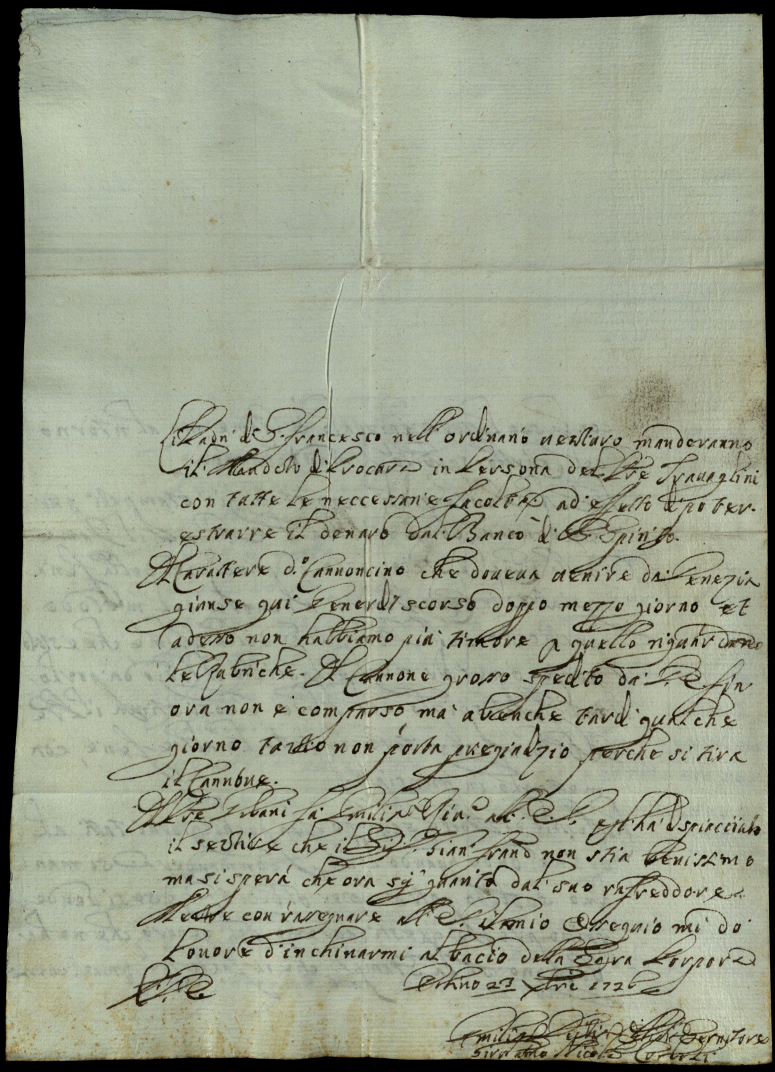 Li Padri di S. Francesco nell'ordinario venturo manderanno
il Mandato di Procura in Persona del Pre Travaglini
con tutte le neccessarie facoltà, ad effetto di poter
estrarre il denaro dal Banco di S. Spirito.
Il Carattere d. Cannoncino che doveva venire da Venezia
giunse qui Venerdì scorso doppo mezzo giorno et
adesso non habbiamo più timore p quello riguardano
le Rubriche. Il Cannone grosso spedito da V. E. fin
ora non è comparso ma abenche tardi qualche
giorno tanto non porta pregiudizio perche si tira
il Cannone.
Il Pre Urbani fà umiliss. a V. E. egli hà dispiacciuto
il sentire che il Sig. Gian Franc. non stia benissimo
ma si spera che ora sij guarito dal suo rafreddore
Mentre con rasegnare all' V. E. il mio Ossequio mi do
l'onore d'inchinarmi al bacio della Sagra Porpora
D. V. E. Urbino 27 Xbre 1726
Umiliss. Servitore
Girolamo Nicola